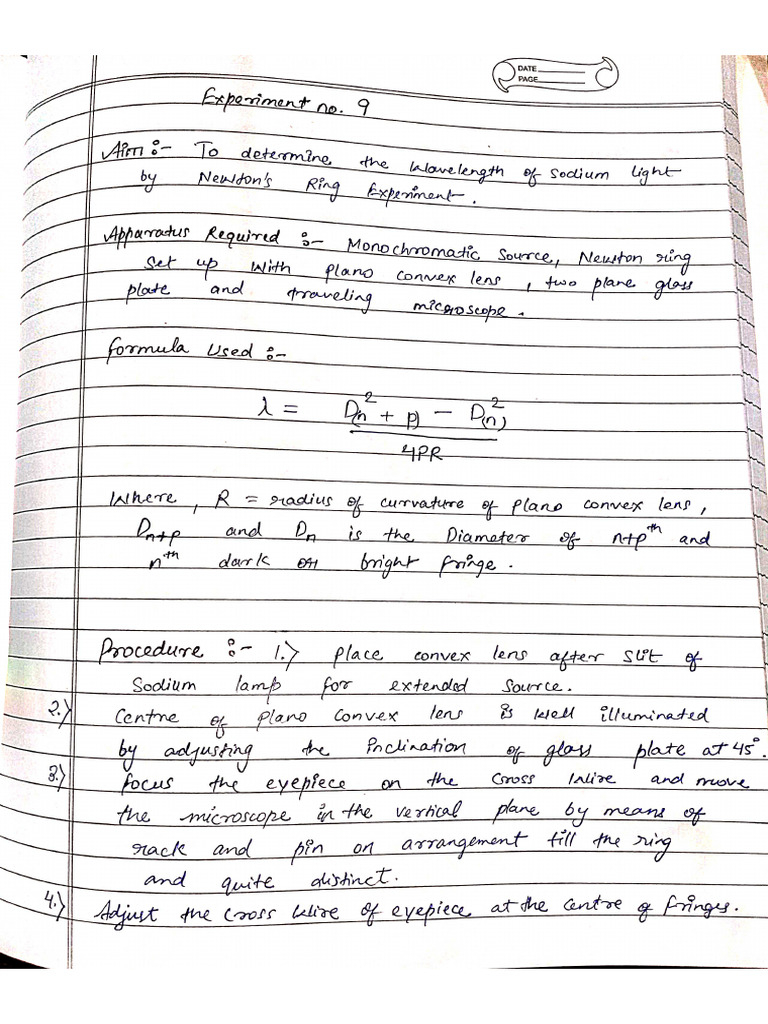 DATE
PAGE
Experiment no. 9
Aim :- To determine the wavelength of sodium light
by Newton's Ring Experiment.
Apparatus Required :- Monochromatic Source, Newton ring
set up with plano convex lens, two plane glass
plate and traveling microscope.
formula Used :-
λ = D²(n + p) - D²(n)
4PR
Where, R = radius of curvature of plano convex lens,
Dn+p and Dn is the Diameter of n+pth and
nth dark or bright fringe.
Procedure :- 1.) place convex lens after slit of
Sodium lamp for extended source.
2.) Centre of plano convex lens is well illuminated
by adjusting the inclination of glass plate at 45°.
3.) focus the eyepiece on the cross wire and move
the microscope in the vertical plane by means of
rack and pin on arrangement till the ring
and quite distinct.
4.) Adjust the cross wire of eyepiece at the centre of fringes.